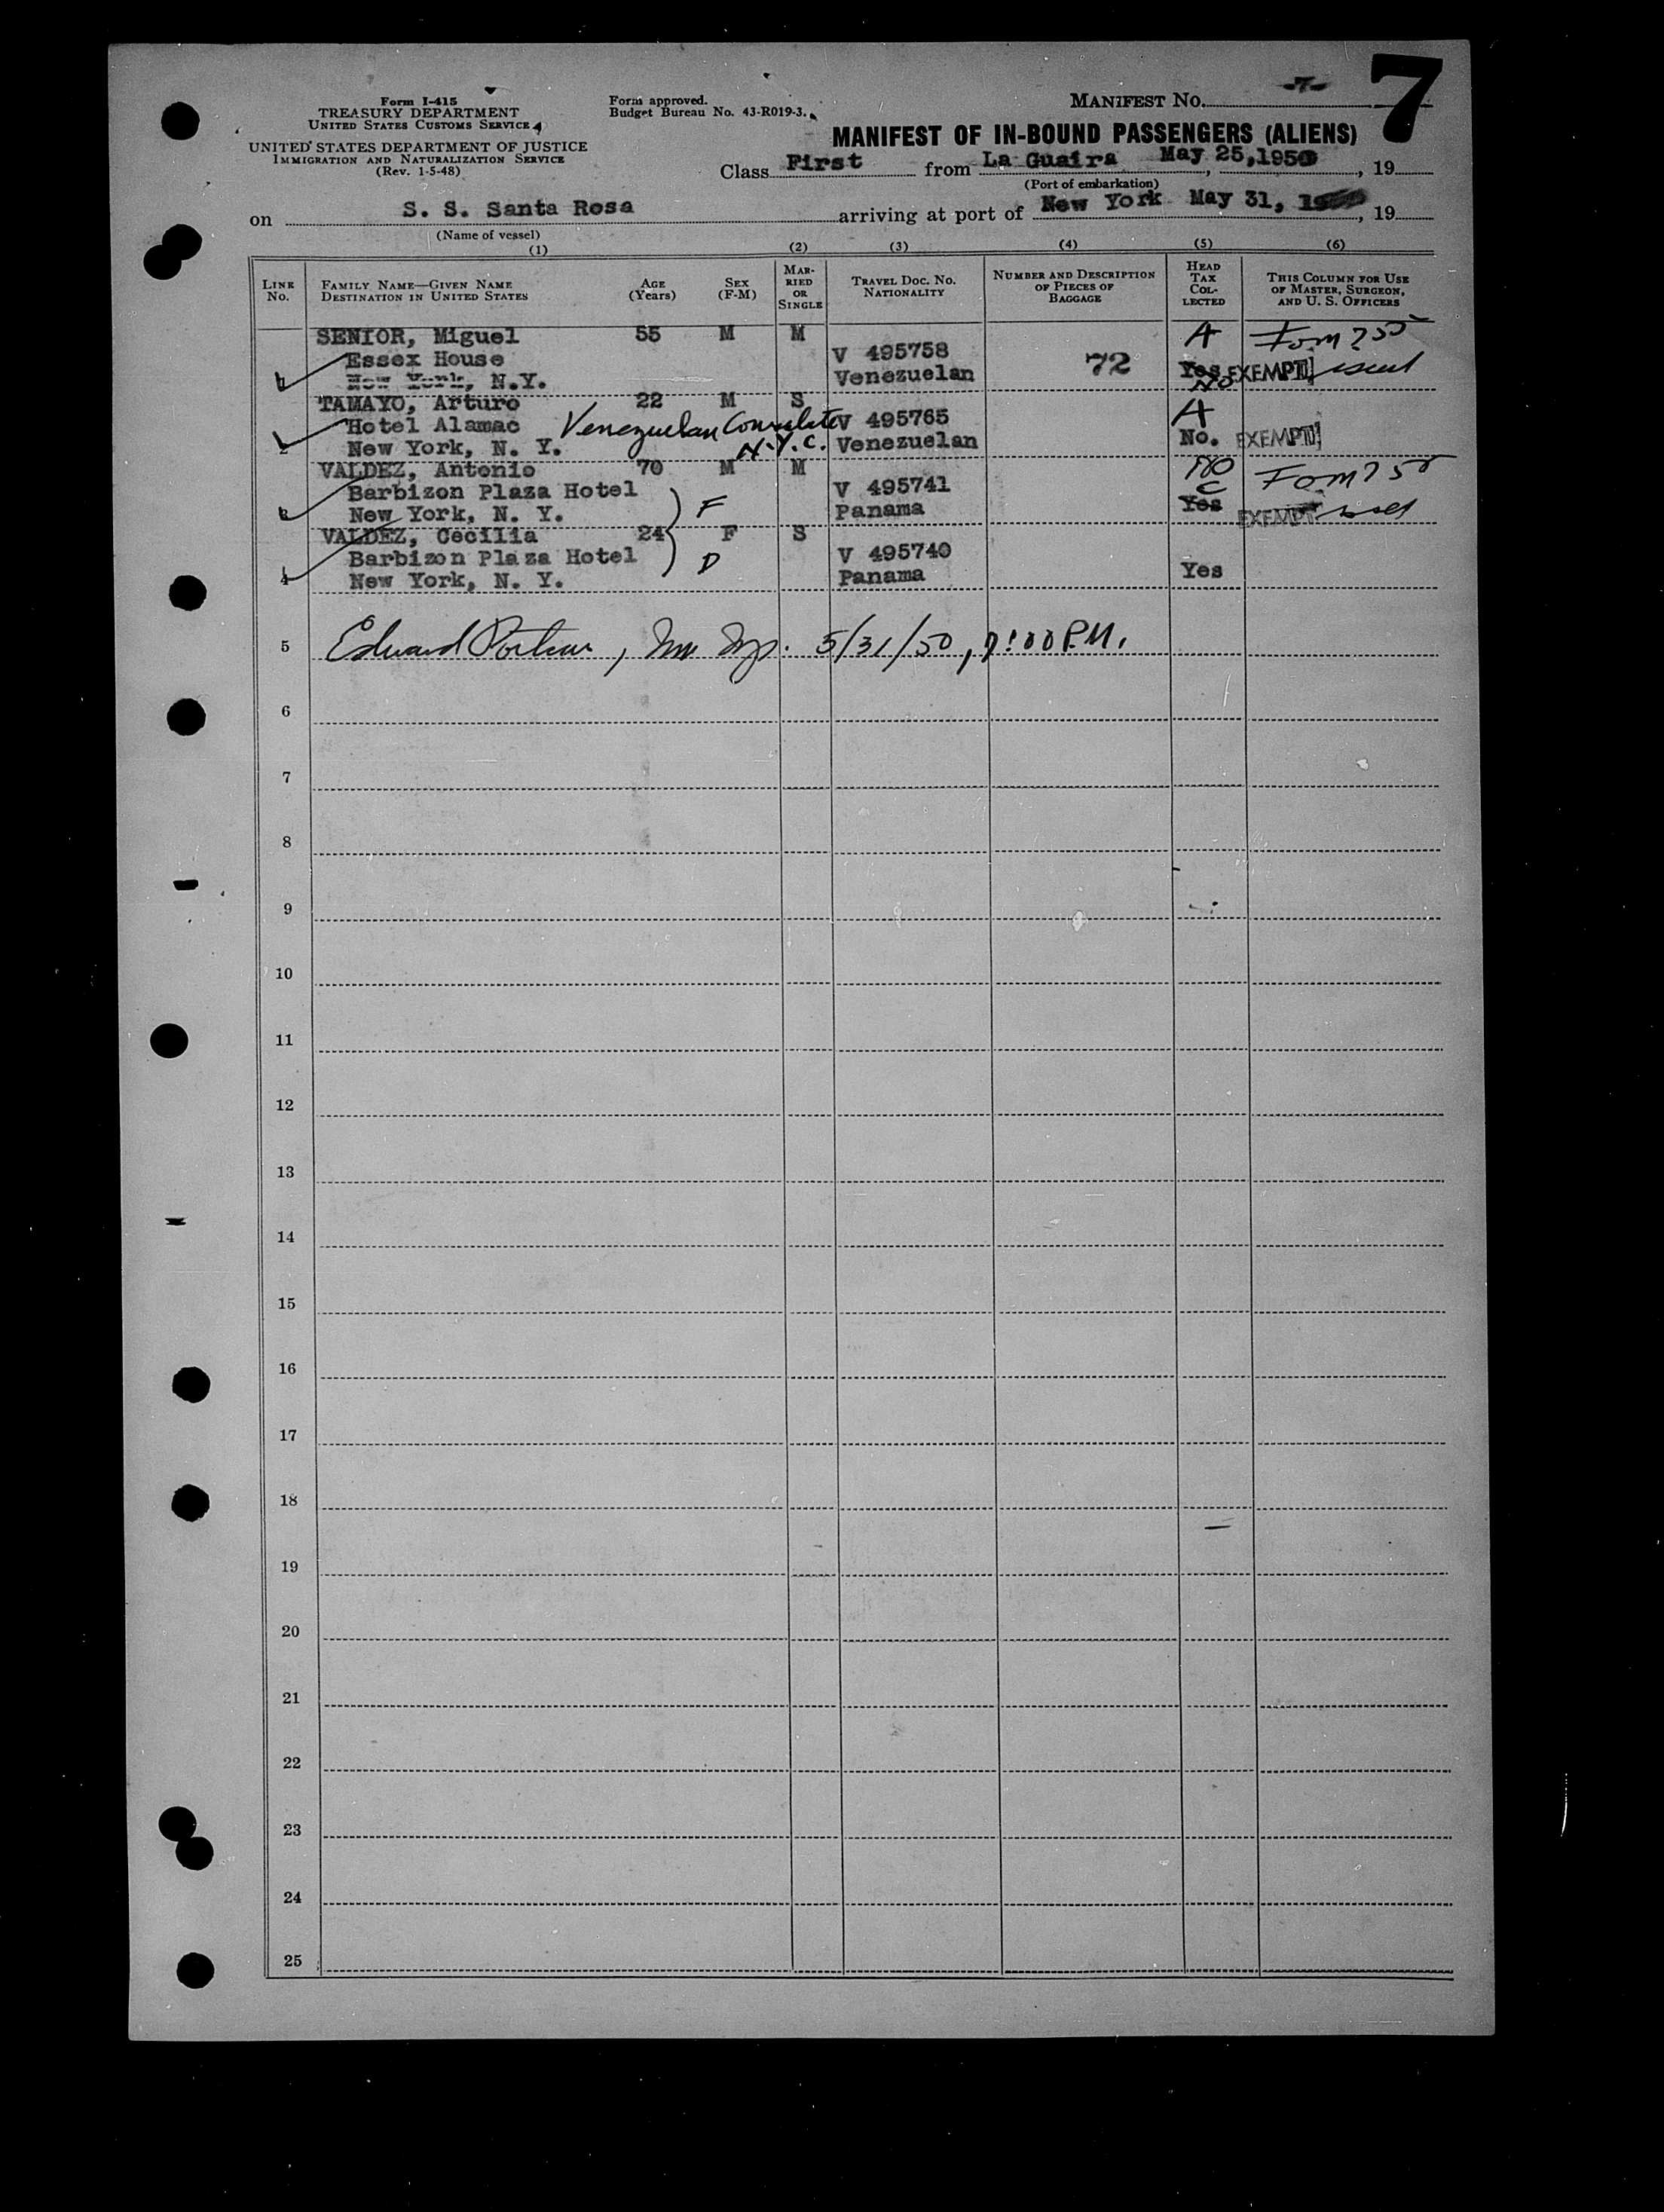 Form I-415
TREASURY DEPARTMENT
UNITED STATES CUSTOMS SERVICE
UNITED STATES DEPARTMENT OF JUSTICE
IMMIGRATION AND NATURALIZATION SERVICE
(Rev. 1-5-48)
Form approved.
Budget Bureau No. 43-R019-3.
MANIFEST No. -7-
7
MANIFEST OF IN-BOUND PASSENGERS (ALIENS)
Class First from La Guaira May 25, 1950, 19
(Port of embarkation)
on S. S. Santa Rosa arriving at port of New York May 31, 19
(Name of vessel)
(1) (2) (3) (4) (5) (6)
LINE No. FAMILY NAME—GIVEN NAME DESTINATION IN UNITED STATES AGE (Years) SEX (F-M) MARRIED OR SINGLE TRAVEL DOC. NO. NATIONALITY NUMBER AND DESCRIPTION OF PIECES OF BAGGAGE HEAD TAX COLLECTED THIS COLUMN FOR USE OF MASTER, SURGEON, AND U. S. OFFICERS
SENIOR, Miguel 55 M M A
Essex House V 495758 72 Yes EXEMPT issued
New York, N.Y. Venezuelan No
TAMAYO, Arturo 22 M S A
Hotel Alamac Venezuelan Consulate V 495765
New York, N. Y. N.Y.C. Venezuelan No. EXEMPT
VALDEZ, Antonio 70 M M NO
Barbizon Plaza Hotel V 495741 C
New York, N. Y. F Panama Yes EXEMPT
VALDEZ, Cecilia 24 F S
Barbizon Plaza Hotel D V 495740
4 New York, N. Y. Panama Yes
5 Edward 5/31/50, :00 P.M.
6
7
8
9
10
11
12
13
14
15
16
17
18
19
20
21
22
23
24
25